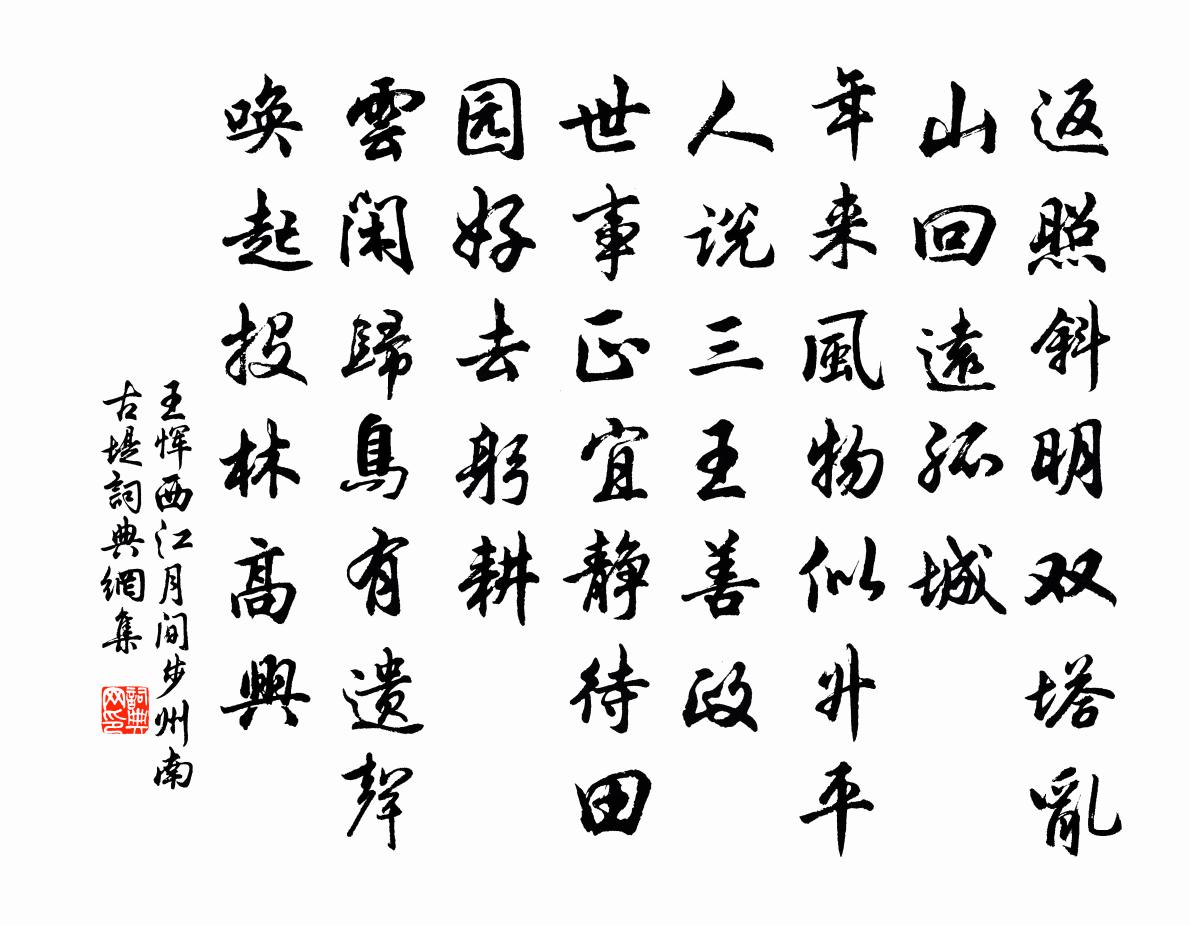 返照斜明双塔亂
山回遠孤城
年来風物似升平
人说三王善政
世事正宜静待田
园好去躬耕
雲闲歸鳥有遗聲
唤起投林高興
王恽西江月间步州南
古堤詞典網集
詞典网印